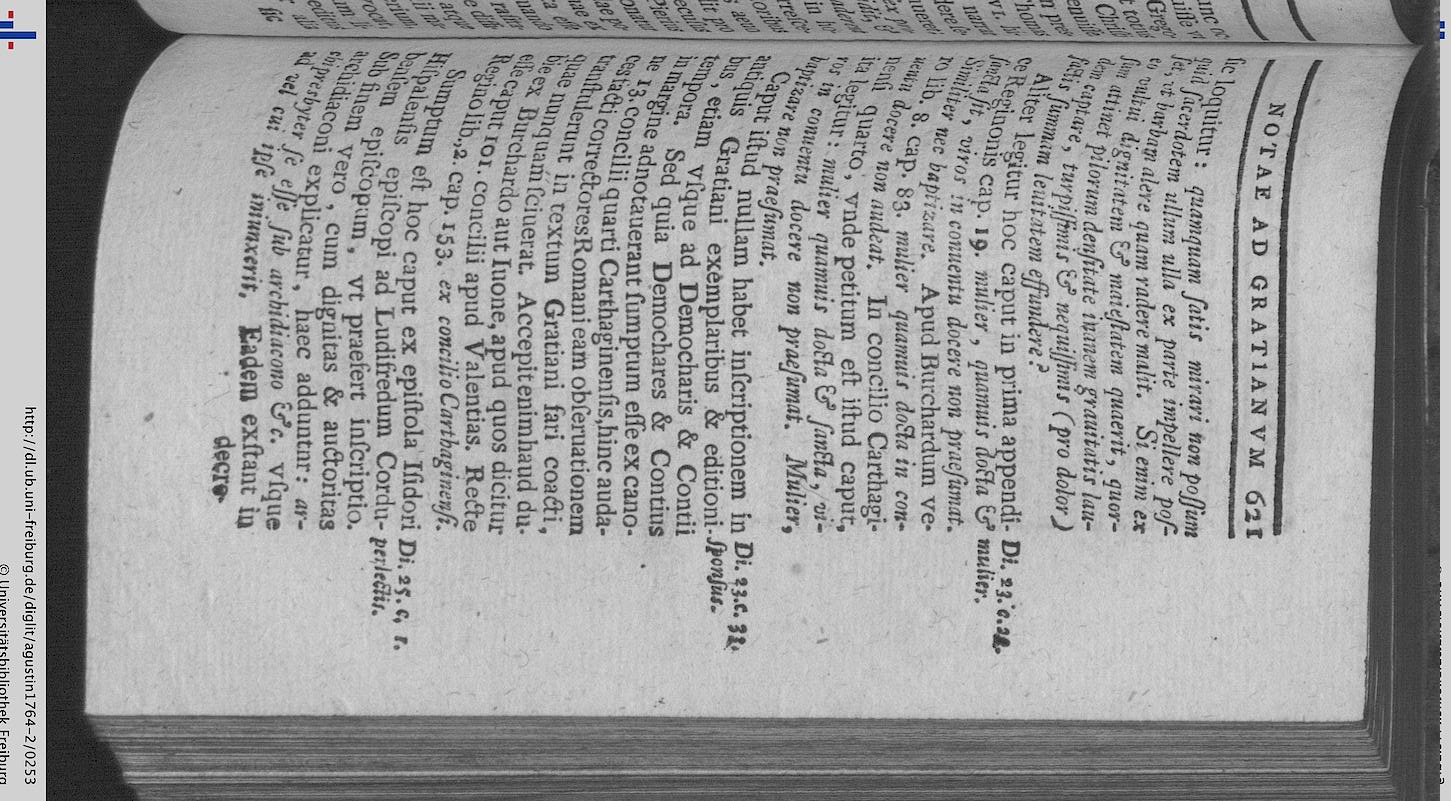 NOTAE AD GRATIANVM 621
sic loquitur: quamquam satis mirari non possum
quid sacerdotem ullum ulla ex parte impellere pos-
set, vt barbam alere quam radere malit. Si enim ex
eo vultui dignitatem & maiestatem quaerit, quor-
sum attinet pilorum densitate inanem grauitatis lau-
dem captare, turpissimis & nequissimis (pro dolor)
factis summam leuitatem effundere?
Aliter legitur hoc caput in prima appendi- Di. 23. c. 24.
ce Reginonis cap. 19. mulier, quamuis docta & mulier.
sancta sit, viros in conuentu docere non praesumat.
Similiter nec baptizare. Apud Burchardum ve-
ro lib. 8. cap. 83. mulier quamuis docta in con-
uentu docere non audeat. In concilio Carthagi-
nensi quarto, vnde petitum est istud caput,
ita legitur: mulier quamuis docta & sancta, vi-
ros in conuentu docere non praesumat. Mulier,
baptizare non praesumat.
Caput istud nullam habet inscriptionem in Di. 23. c. 32.
antiquis Gratiani exemplaribus & editioni- sponsus.
bus, etiam vsque ad Democharis & Contii
tempora. Sed quia Demochares & Contius
in margine adnotauerant sumptum esse ex cano-
ne 13. Concilii quarti Carthaginensis, hinc auda-
ces facti correctores Romani eam obseruationem
transtulerunt in textum Gratiani fari coacti,
quae nunquam sciuerat. Accepit enim haud du-
bie ex Burchardo aut Iuone, apud quos dicitur
esse caput 101. concilii apud Valentias. Recte
Regino lib, 2. cap. 153. ex concilio Carthaginensi,
Sumptum est hoc caput ex epistola Isidori Di. 25. c, 1.
Hispalensis episcopi ad Ludifredum Cordu- perlectis.
bensem episcopum, vt praefert inscriptio.
Sub finem vero, cum dignitas & auctoritas
archidiaconi explicatur, haec adduntur: ar-
chipresbyter se esse sub archidiacono &c. vsque
ad vel cui ipse iniunxerit, Eadem exstant in
decre-
http://dl.ub.uni-freiburg.de/diglit/agustin1764-2/0253
© Universitätsbibliothek Freiburg